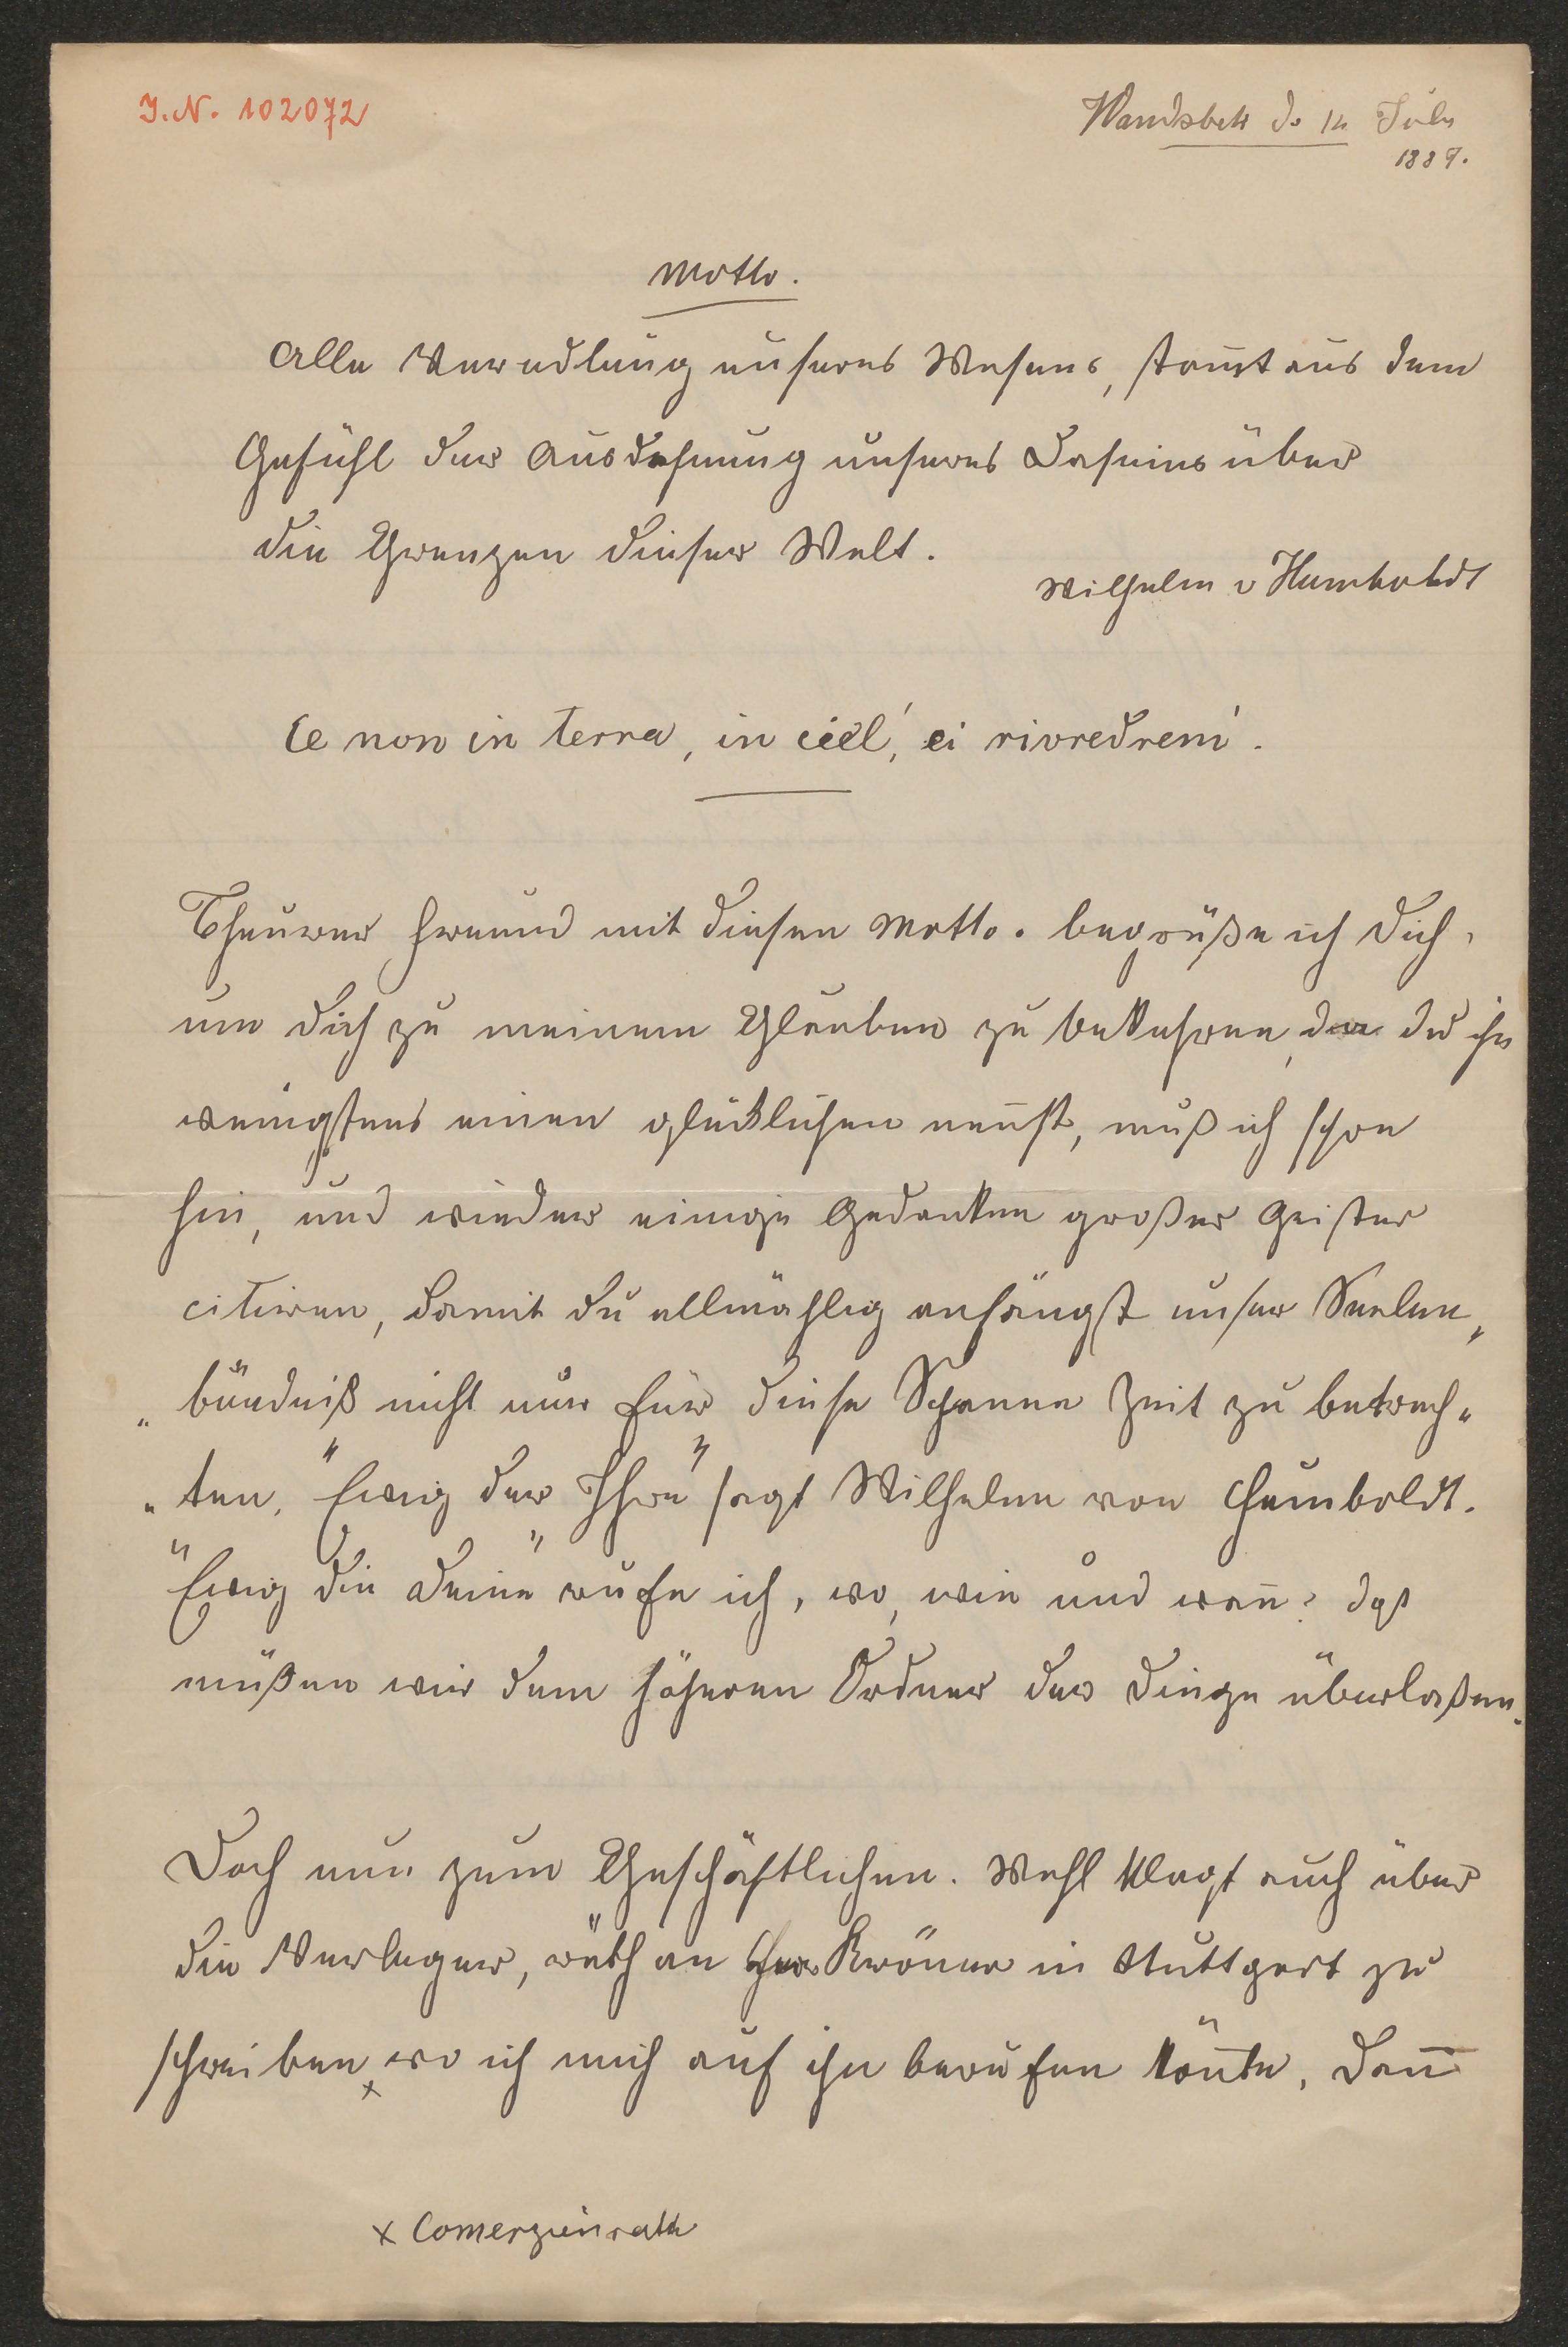 I.N. 102072
Wandsbek d. 14 July
1889.
Motto.
Alle Veredlung unseres Wesens, stam̄t aus dem
Gefühl der Ausdehnung unseres Daseins über
die Grenzen dieser Welt.
Wilhelm v Humboldt
Ce non in terra, in ciel', ci rivredrem'.
Theurer Freund mit diesen Motto. begrüße ich Dich,
um Dich zu meinem Glauben zu bekehren, da du ihn
wenigstens einen glücklichen nen̄st, muß ich schon
hin, und wieder einige Gedanken großer Geister
citiren, damit du allmählig anfängst unser Seelen„
„bündniß nicht nur für diese Spanne Zeit zu betrach„
„ten, "Ewig der Ihre" sagt Wilhelm von Humboldt.
"Ewig die Deine" rufe ich, wo, wie und wan̄? das
müßen wir dem höheren Ordner der Dinge überlaßen.
Doch nun zum Geschäftlichen. Wehl klagt auch über
die Verleger, räth an Herr Kröner in Stuttgart zu
schreiben x wo ich mich auf ihn berufen kön̄te, dan̄
x Comerzienrath